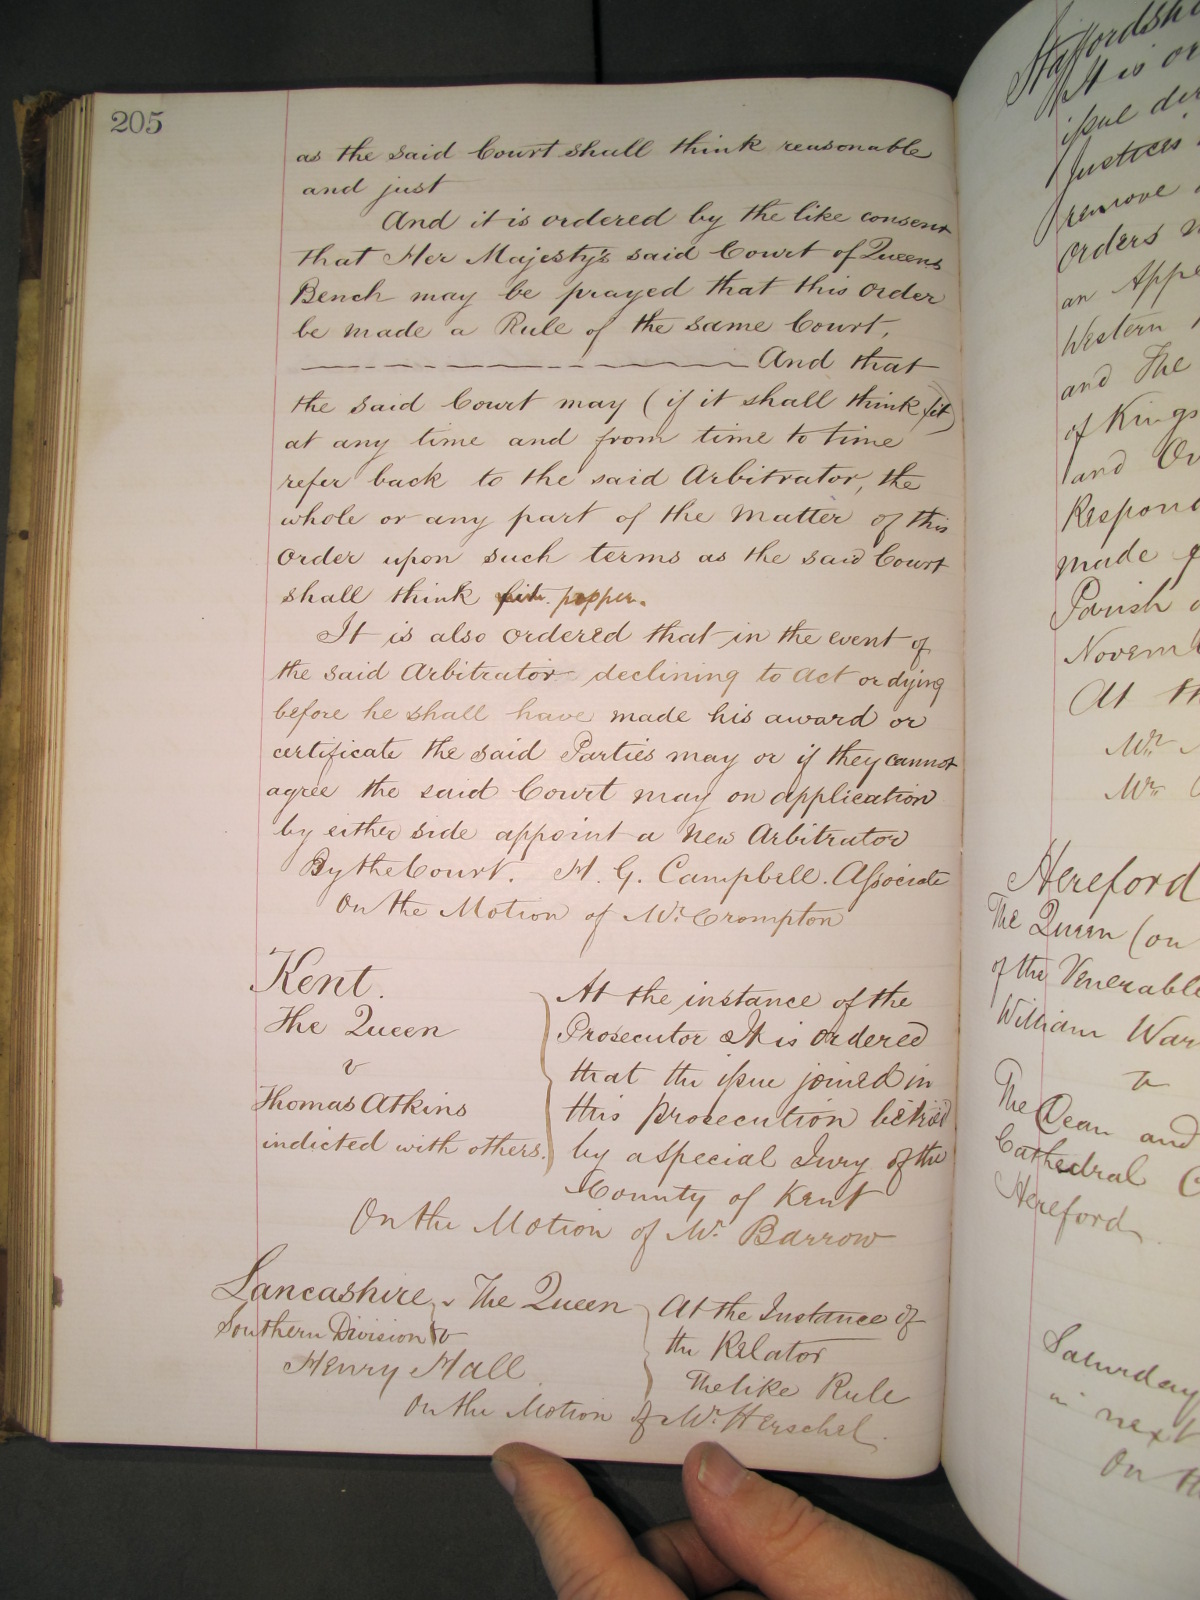 205
as the said Court shall think reasonable
and just
And it is ordered by the like consent
that Her Majesty's said Court of Queens
Bench may be prayed that this order
be made a Rule of the same Court,
And that
the said Court may (if it shall think fit)
at any time and from time to time
refer back to the said Arbitrator, the
whole or any part of the Matter of this
Order upon such terms as the said Court
shall think fit. propper.
It is also ordered that in the event of
the said Arbitrator declining to act or dying
before he shall have made his award or
certificate the said Parties may or if they cannot
agree the said Court may on application
by either side appoint a New Arbitrator
By the Court. H. G. Campbell. Associate
On the Motion of Mr. Crompton
Kent.
The Queen
v
Thomas Atkins
indicted with others.
At the instance of the
Prosecutor It is ordered
that the issue joined in
this prosecution be tried
by a special Jury of the
County of Kent
On the Motion of Mr. Barrow
Lancashire The Queen
Southern Division v
Henry Hall
At the Instance of
the Relator
The like Rule
On the Motion of Mr. Herschel.
Staffordsh
It is or
issue dir
Justices
remove
Orders
an Appe
Western
and The
of Kings
and Ov
Respond
made
Parish
Novem
At th
Mr.
Mr.
Hereford
The Queen (on
of the Venerable
William War
v
The Dean and
Cathedral C
Hereford
Saturday
in next
On th